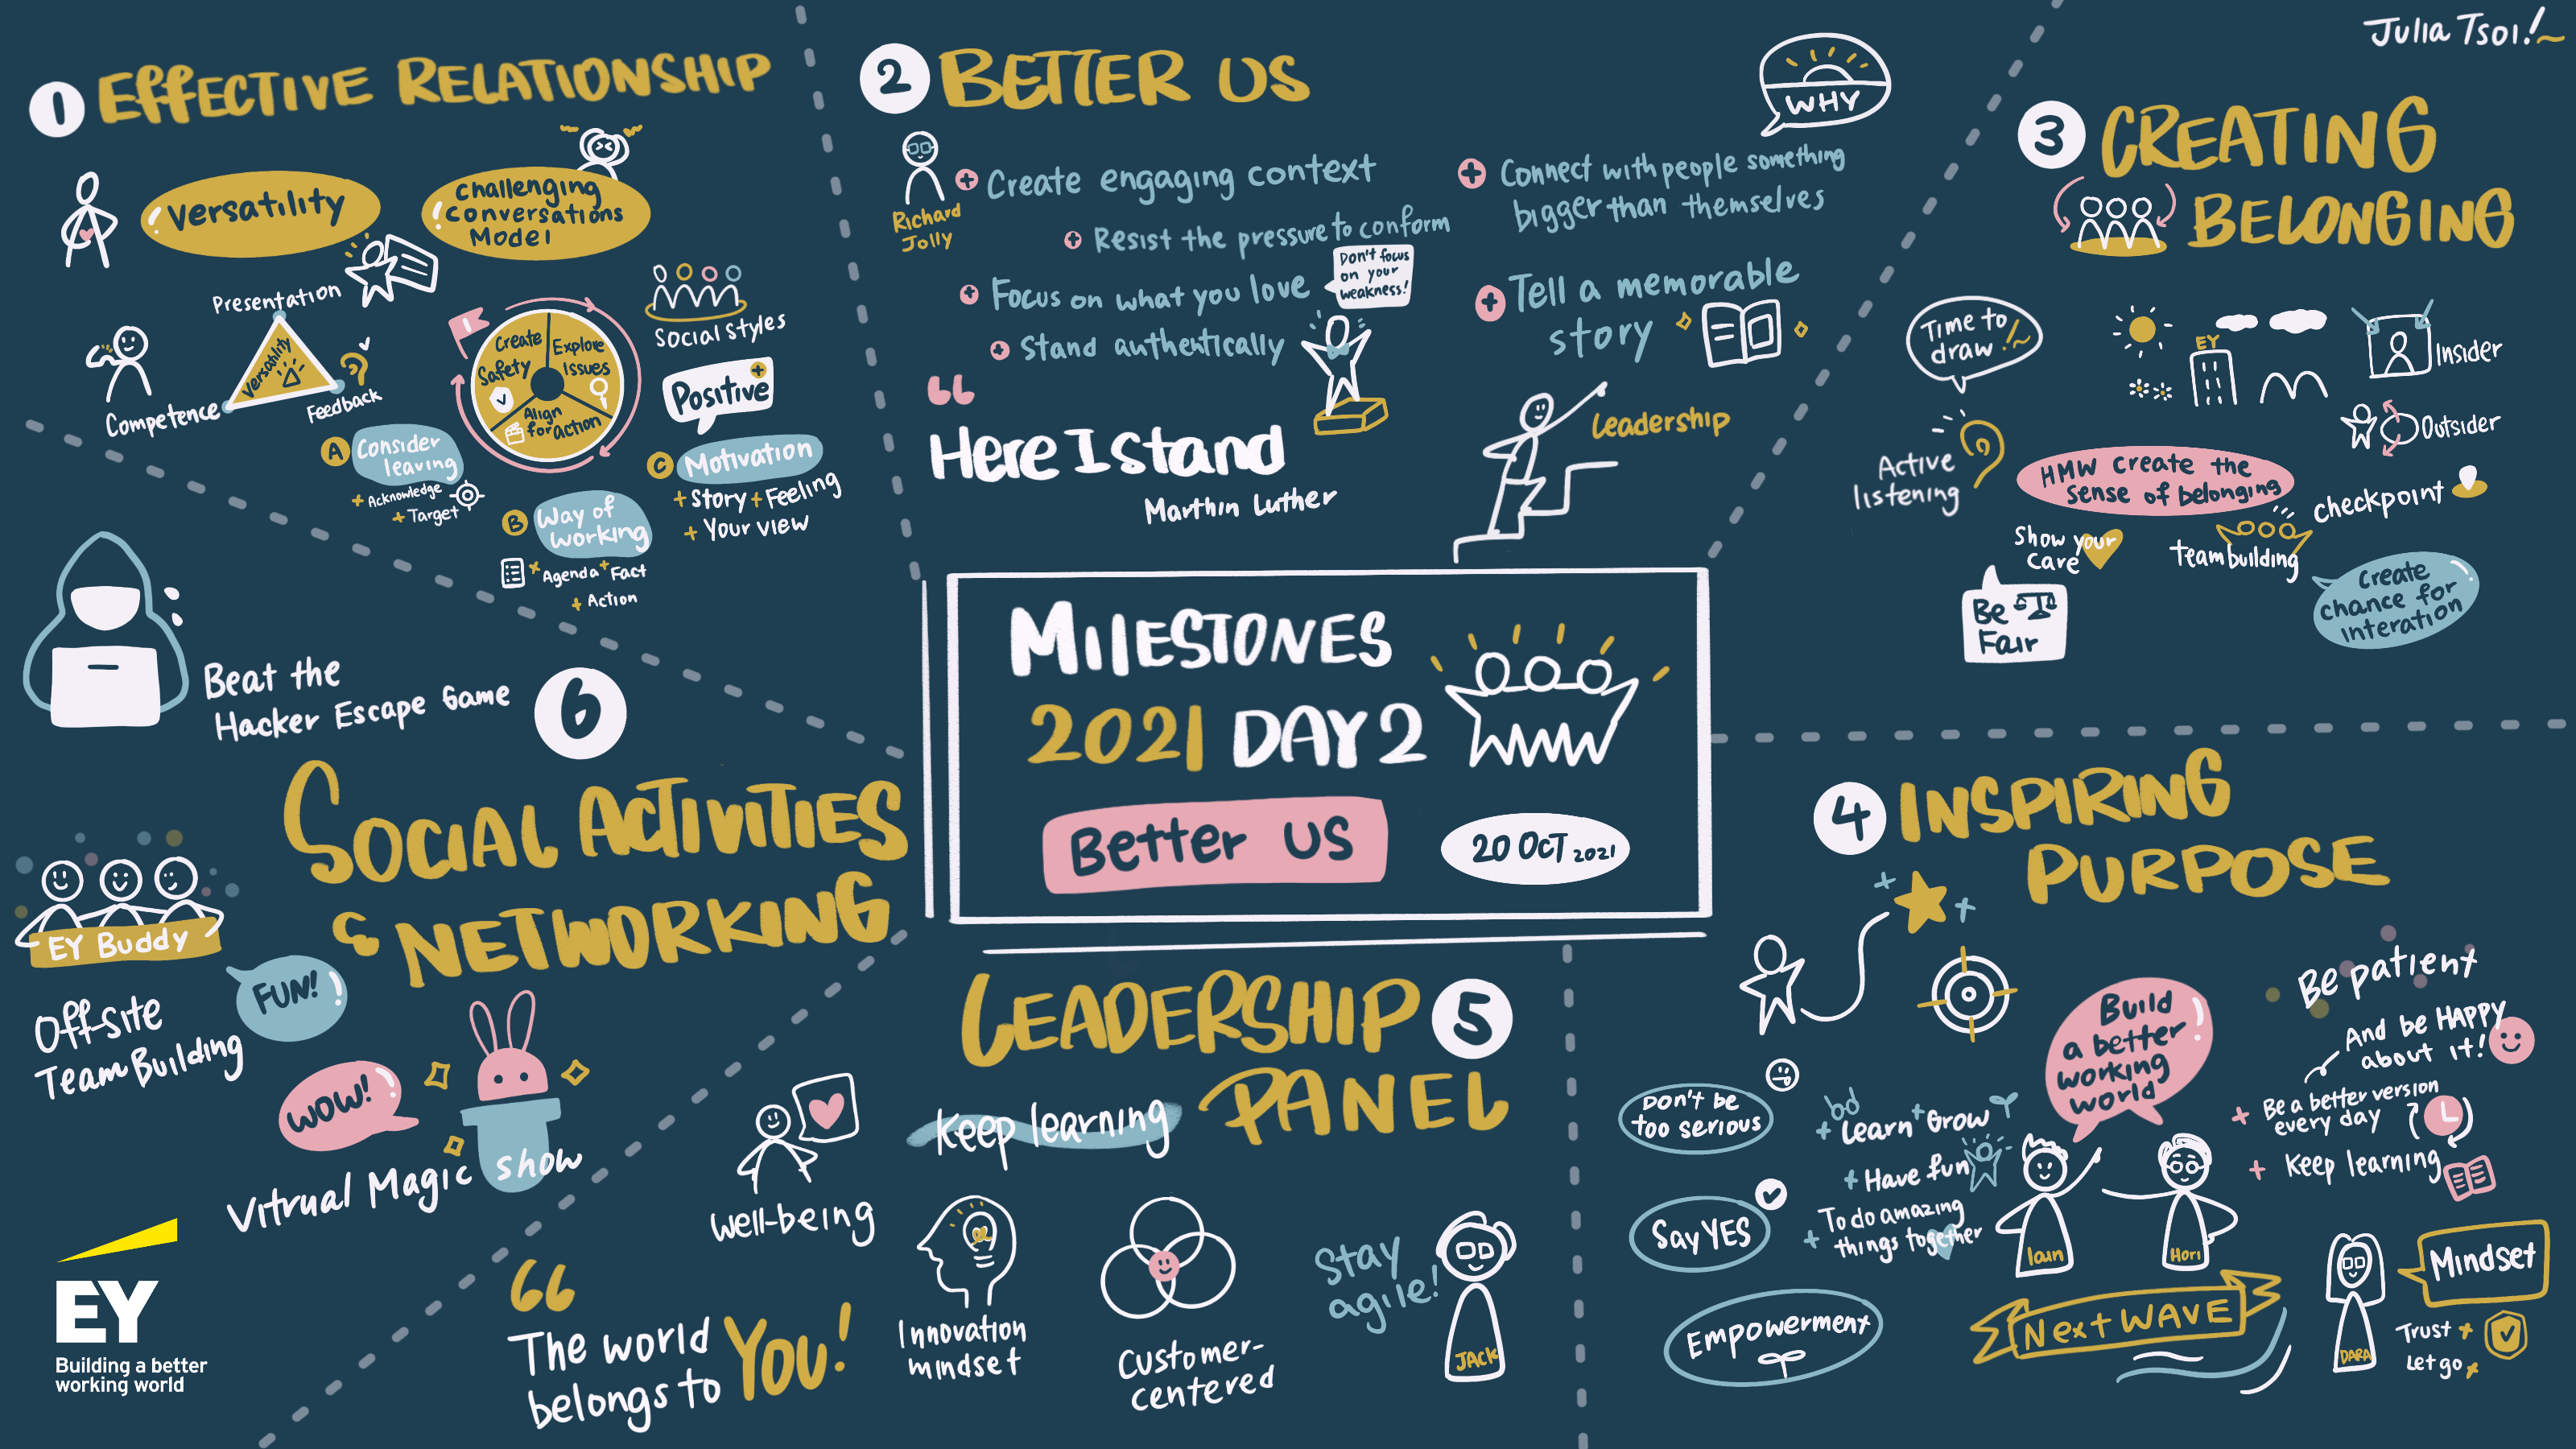 Julia Tsoi!~
1 Effective Relationship
! Versatility
! Challenging
Conversations
Model
Presentation
Versatility
Competence
Feedback
Create
Safety
Explore
Issues
Align
for action
Social styles
Positive +
A Consider
leaving
+ Acknowledge
+ Target
B Way of
working
+ Agenda + Fact
+ Action
C Motivation
+ Story + Feeling
+ Your view
2 Better Us
WHY
Richard
Jolly
+ Create engaging context
+ Resist the pressure to conform
+ Focus on what you love
Don't focus
on your
weakness!
+ Stand authentically
+ Connect with people something
bigger than themselves
+ Tell a memorable
story
Leadership
“
Here I stand
Marthin Luther
3 Creating
Belonging
Time to
draw!~
EY
Insider
Outsider
Active
listening
HMW create the
sense of belonging
checkpoint
Show your
care
team building
Be
Fair
Create
chance for
interation
Milestones
2021 Day 2
Better Us
20 Oct 2021
4 Inspiring
Purpose
Build
a better
working
world!
Be patient
And be HAPPY
about it!
+ Be a better version
every day
+ Keep learning
Don't be
too serious
Say YES
Empowerment
+ Learn + Grow
+ Have fun
+ To do amazing
things together
Iain
Hori
Next WAVE
DARA
Mindset
Trust +
Let go +
Leadership 5
Panel
Keep learning
well-being
Innovation
mindset
Customer-
centered
Stay
agile!
JACK
“
The world
belongs to YOU!
6
Beat the
Hacker Escape Game
Social Activities
& Networking
EY Buddy
FUN!
Off-site
Team Building
WOW!
Vitrual Magic show
EY
Building a better
working world